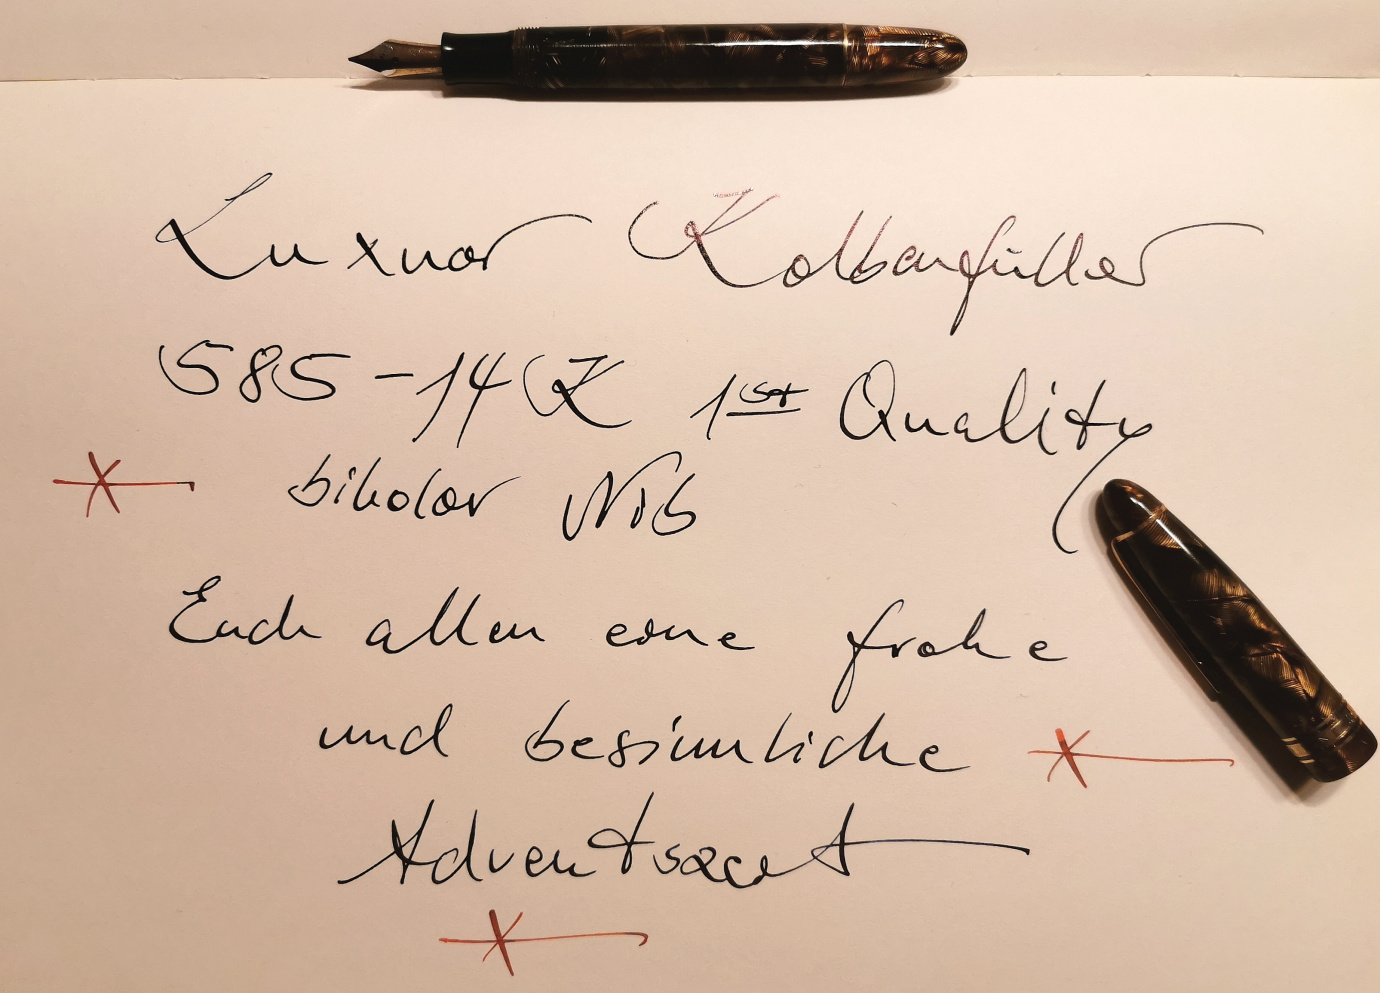 Luxuor Kolbenfüller
585-14K 1st Quality
bikolor Nib
Euch allen eine frohe
und besinnliche
Adventszeit